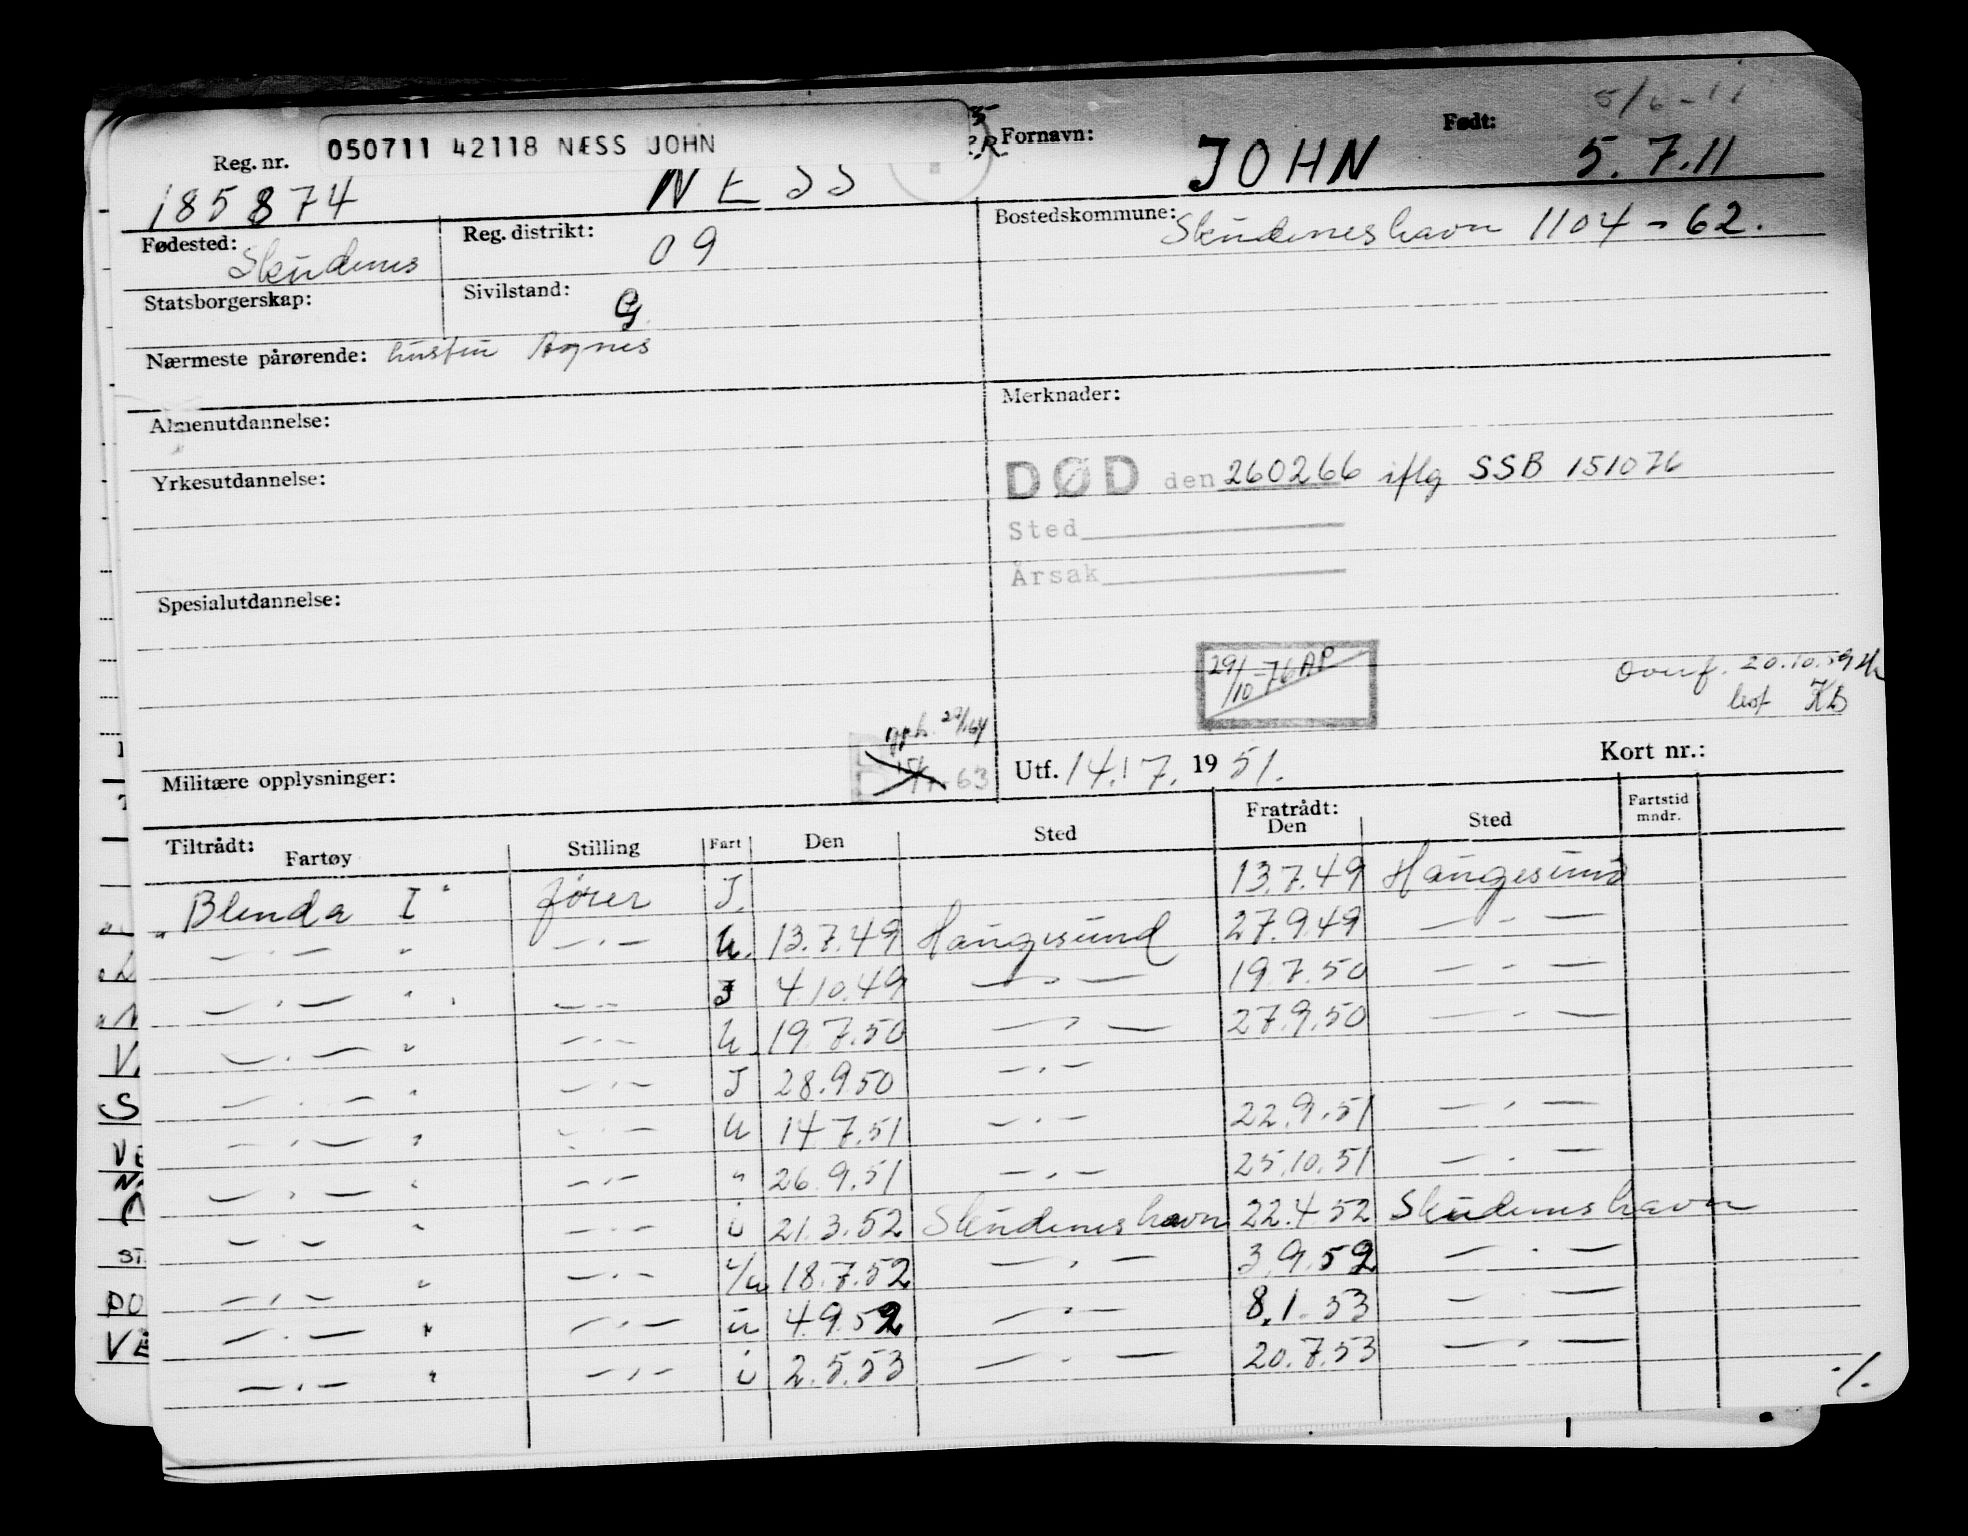 5/6-11
050711 42118 NÆSS JOHN
Reg. nr. 185874 NESS Fornavn: JOHN Født: 5.7.11
Fødested: Skudenes Reg. distrikt: 09 Bostedskommune: Skudeneshavn 1104-62.
Statsborgerskap: Sivilstand: G
Nærmeste pårørende: hustru Agnes
Almenutdannelse: Merknader:
Yrkesutdannelse: DØD den 260266 iflg SSB 151076
Sted
Årsak
Spesialutdannelse:
29/10-76 AP
Overf. 20.10.59
KB
Militære opplysninger: 63 Utf. 14.7. 1951. Kort nr.:
Tiltrådt: Fartøy Stilling Fart Den Sted Fratrådt: Den Sted Fartstid mndr.
"Blenda I" fører J. 13.7.49 Haugesund
— . — " — . — U. 13.7.49 Haugesund 27.9.49 — . —
— . — " — . — J 4.10.49 — . — 19.7.50 — . —
— . — " — . — U. 19.7.50 — . — 27.9.50 — . —
— . — " — . — J 28.9.50 — . —
— . — " — . — U 14.7.51 — . — 22.9.51 — . —
— . — " — . — " 26.9.51 — . — 25.10.51 — . —
— . — " — . — i 21.3.52 Skudeneshavn 22.4.52 Skudeneshavn
— . — " — . — i/u 18.7.52 — . — 3.9.52 — . —
— . — " — . — u 4.9.52 — . — 8.1.53 — . —
— . — " — . — i 2.5.53 — . — 20.7.53 — . —
./.